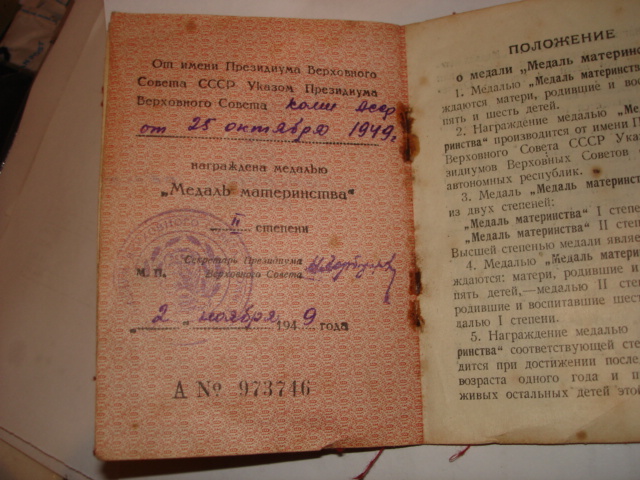 От имени Президиума Верховного
Совета СССР Указом Президиума
Верховного Совета Коми АССР
от 25 октября 1949 г
награждена медалью
„Медаль материнства“
II степени
Секретарь Президиума
М. П. Верховного Совета
„2“ ноября 1949 года
А № 973746
ПОЛОЖЕНИЕ
о медали „Медаль материнс
1. Медалью „Медаль материнств
ждаются матери, родившие и вос
пять и шесть детей.
2. Награждение медалью „Ме
ринства“ производится от имени П
Верховного Совета СССР Указ
зидиумов Верховных Советов
автономных республик.
3. Медаль „Медаль материнс
из двух степеней:
„Медаль материнства“ I степе
„Медаль материнства“ II степе
Высшей степенью медали являе
4. Медалью „Медаль матери
ждаются: матери, родившие и
пять детей,—медалью II степ
родившие и воспитавшие шест
далью I степени.
5. Награждение медалью
ринства“ соответствующей сте
дится при достижении после
возраста одного года и п
живых остальных детей этой